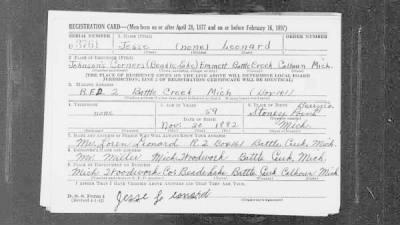 REGISTRATION CARD—(Men born on or after April 28, 1877 and on or before February 16, 1897)
SERIAL NUMBER 1. NAME (Print) ORDER NUMBER
Jesse (none) Leonard
2. PLACE OF RESIDENCE (Print)
Johnson's Corners (Beadle Lake) Emmett Battle Creek Calhoun Mich
[THE PLACE OF RESIDENCE GIVEN ON THE LINE ABOVE WILL DETERMINE LOCAL BOARD
JURISDICTION; LINE 2 OF REGISTRATION CERTIFICATE WILL BE IDENTICAL]
3. MAILING ADDRESS
R.F.D. 2 Battle Creek Mich (Box 58)
4. TELEPHONE 5. AGE IN YEARS 6. PLACE OF BIRTH
none 59 Stoney Point
DATE OF BIRTH
Nov. 20 1882 Mich.
7. NAME AND ADDRESS OF PERSON WHO WILL ALWAYS KNOW YOUR ADDRESS
Mrs. Loren Leonard R. 2 Box 58 Battle Creek, Mich.
8. EMPLOYER'S NAME AND ADDRESS
Mr. Miller Mich. Woodwork Battle Creek, Mich.
9. PLACE OF EMPLOYMENT OR BUSINESS
Mich. Woodwork Co. Beadle Lake Battle Creek Calhoun Mich
I AFFIRM THAT I HAVE VERIFIED ABOVE ANSWERS AND THAT THEY ARE TRUE.
D. S. S. Form 1
(Revised 4-1-42)
Jesse Leonard